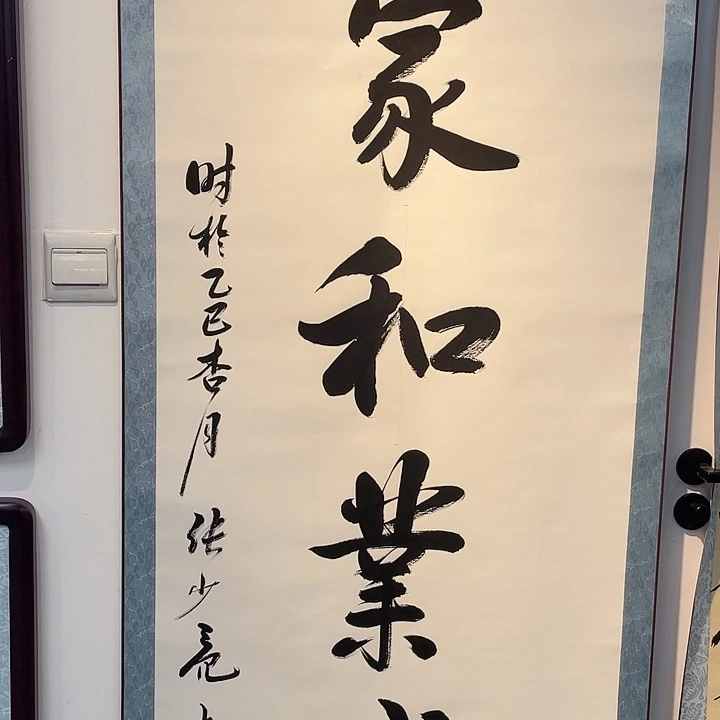 家和業
时於乙巳杏月张少亮